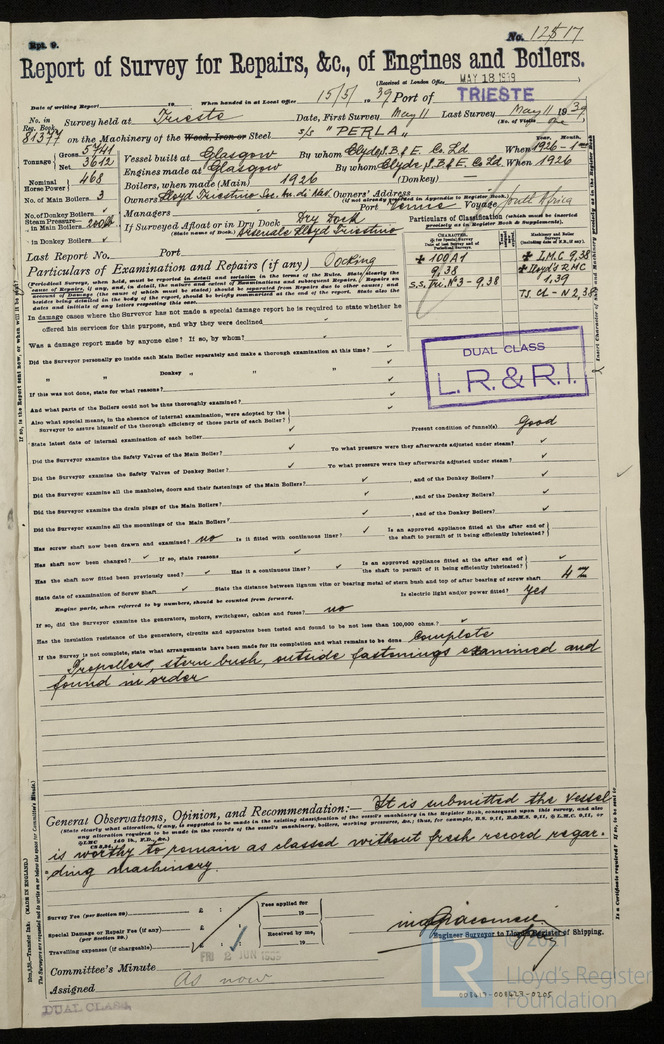 Rpt. 9.
No. 12517
Report of Survey for Repairs, &c., of Engines and Boilers.
(Received at London Office MAY 18 1939
Date of writing Report 19 When handed in at Local Office 15/5/ 1939 Port of TRIESTE
No. in Reg. Book. Survey held at Trieste Date, First Survey May 11 Last Survey May 11 1939
(No. of Visits one)
81377 on the Machinery of the Wood, Iron or Steel s/s "PERLA"
Tonnage Gross 5741 Net 3612
Vessel built at Glasgow By whom Clyde S.B. & E. Co Ld When 1926 - 1
Engines made at Glasgow By whom Clyde S.B. & E. Co Ld When 1926
Nominal Horse Power 468
Boilers, when made (Main) 1926 (Donkey)
No. of Main Boilers 3
Owners Lloyd Triestino Soc. An. di Nav. Owners' Address
(if not already recorded in Appendix to Register Book.)
No. of Donkey Boilers
Managers Port Voyage South Africa
Steam Pressure— in Main Boilers 200 lb
in Donkey Boilers
If Surveyed Afloat or in Dry Dock Dry Dock
(State name of Dock.) Arsenale Lloyd Triestino
Particulars of Classification (which must be inserted precisely as in Register Book & Supplements).
Last Report No. Port
Particulars of Examination and Repairs (if any) Docking
✠ 100A1
9,38
S.S. Tri. No 3 - 9,38
✠ L.M.C 9,38
✠ Lloyd's RMC
1,39
TS. CL - N 2,38
In damage cases where the Surveyor has not made a special damage report he is required to state whether he
offered his services for this purpose, and why they were declined
Was a damage report made by anyone else? If so, by whom?
Did the Surveyor personally go inside each Main Boiler separately and make a thorough examination at this time?
" " Donkey " " "
DUAL CLASS
L.R. & R.I.
If this was not done, state for what reasons?
And what parts of the Boilers could not be thus thoroughly examined?
Also what special means, in the absence of internal examination, were adopted by the
Surveyor to assure himself of the thorough efficiency of those parts of each Boiler?
Present condition of funnel(s) Good
State latest date of internal examination of each boiler
Did the Surveyor examine the Safety Valves of the Main Boiler? To what pressure were they afterwards adjusted under steam?
Did the Surveyor examine the Safety Valves of Donkey Boiler? To what pressure were they afterwards adjusted under steam?
Did the Surveyor examine all the manholes, doors and their fastenings of the Main Boilers? , and of the Donkey Boilers?
Did the Surveyor examine the drain plugs of the Main Boilers? , and of the Donkey Boilers?
Did the Surveyor examine all the mountings of the Main Boilers? , and of the Donkey Boilers?
Has screw shaft now been drawn and examined? no Is it fitted with continuous liner? Is an approved appliance fitted at the after end of the shaft to permit of it being efficiently lubricated?
Has shaft now been changed? If so, state reasons
Has the shaft now fitted been previously used? Has it a continuous liner? Is an approved appliance fitted at the after end of the shaft to permit of it being efficiently lubricated?
State date of examination of Screw Shaft State the distance between lignum vitæ or bearing metal of stern bush and top of after bearing of screw shaft
Engine parts, when referred to by numbers, should be counted from forward. Is electric light and/or power fitted? yes
If so, did the Surveyor examine the generators, motors, switchgear, cables and fuses? no
Has the insulation resistance of the generators, circuits and apparatus been tested and found to be not less than 100,000 ohms?
If the Survey is not complete, state what arrangements have been made for its completion and what remains to be done Complete
Propellers, stern bush, outside fastenings examined and
found in order
General Observations, Opinion, and Recommendation:— It is submitted the vessel
is worthy to remain as classed without fresh record regar-
ding machinery.
Survey Fee (per Section 29) £ : :
Special Damage or Repair Fee (if any) (per Section 29.) £ : :
Travelling expenses (if chargeable) £ : :
Fees applied for
19
Received by me,
19
Engineer Surveyor to Lloyd's Register of Shipping.
Committee's Minute FRI 2 JUN 1939
Assigned as now
DUAL CLASS
LR
© 2021
Lloyd's Register
Foundation
008419-008423-0205